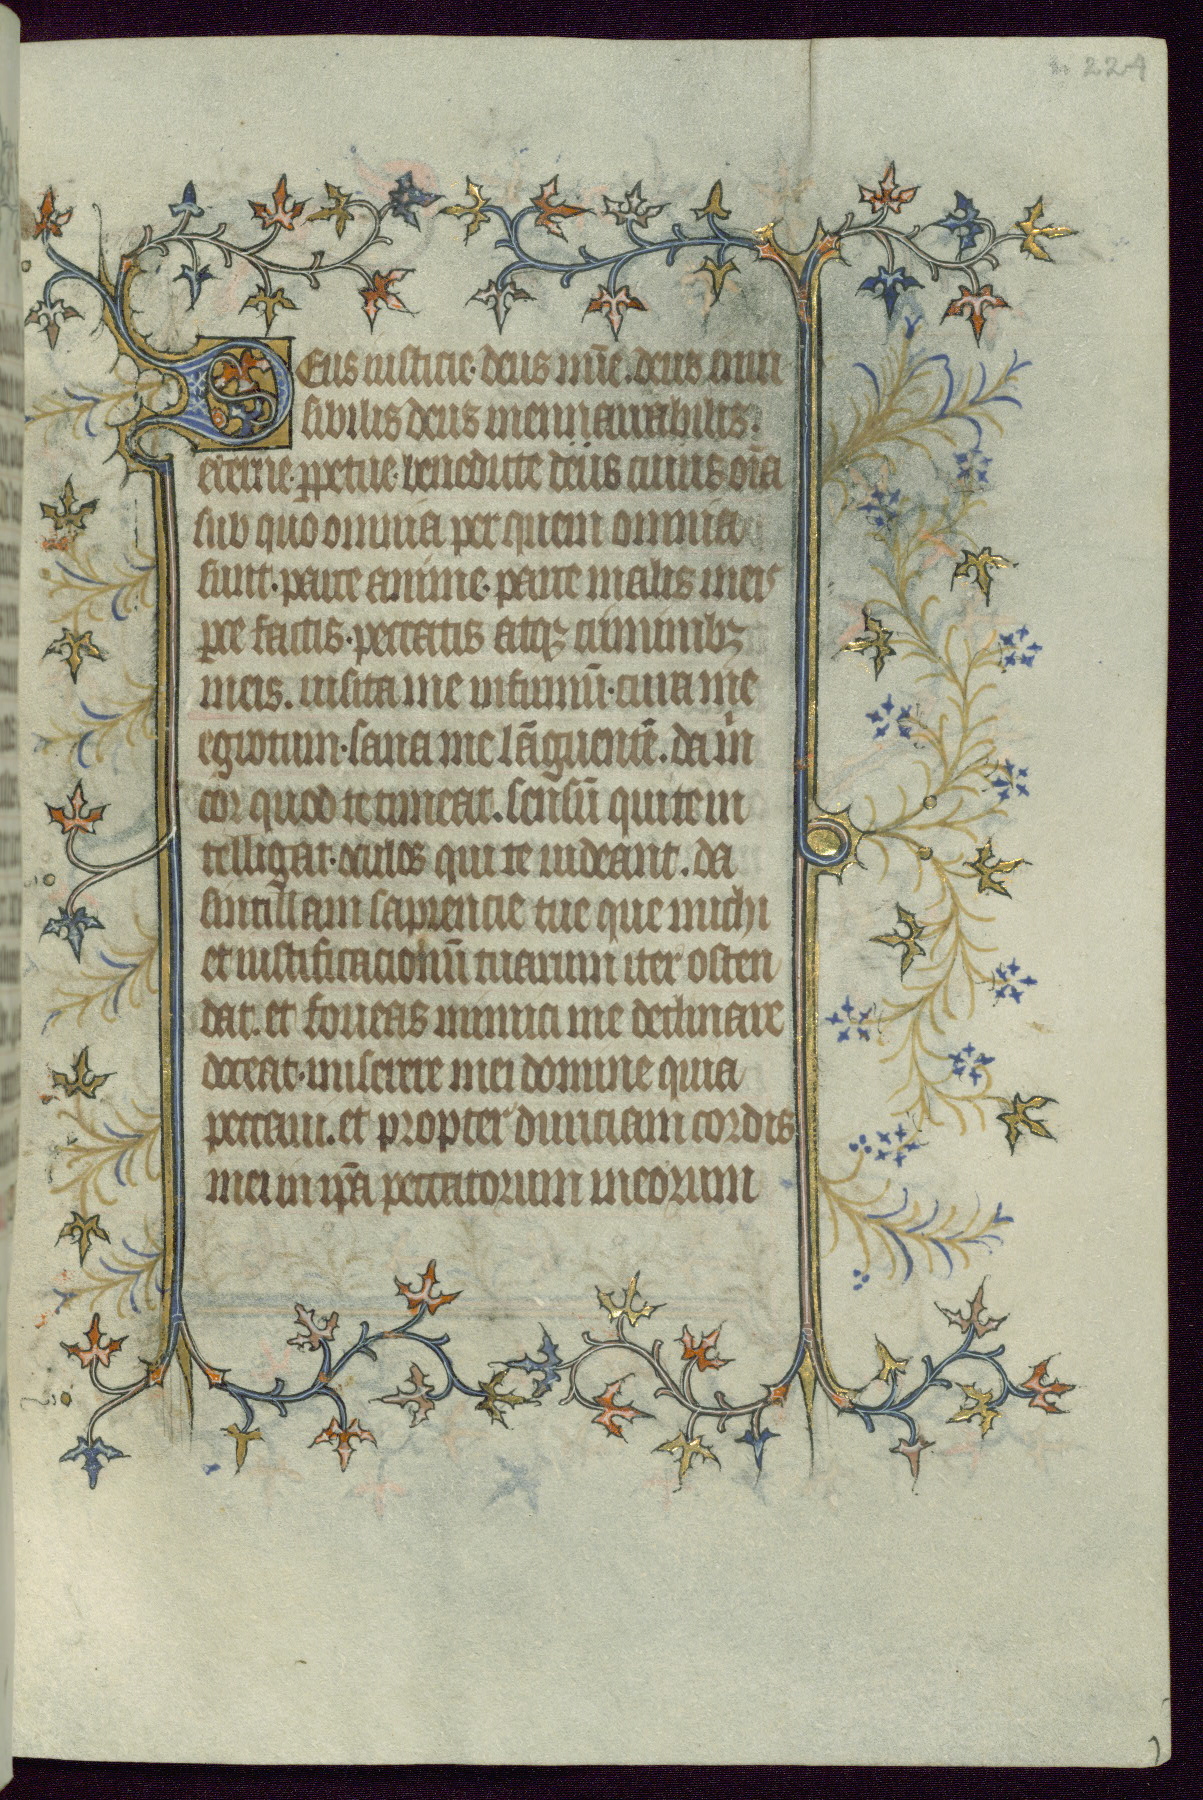 224
Deus iusticie. deus mīe. deus inui
sibilis deus inennarrabilis.
eterne. ꝑpetue. benedicte deus cuius oīa
sub quo omnia per quem omnia
sunt. parce anime. parce malis meis
parce factis. peccatis atqꝫ criminibꝫ
meis. uisita me infirmū. cura me
egrotum. sana me lāguentē. da m̍
cor quod te timeat. sensū qui te in
telligat. oculos qui te uideant. da
sintillam sapiencie tue que michi
et iustificacionū tuarum iter osten
dat. et foueas inimici me declinare
doceat. miserere mei domine quia
peccaui. et propter duriciam cordis
mei in ip̄a peccatorum meorum